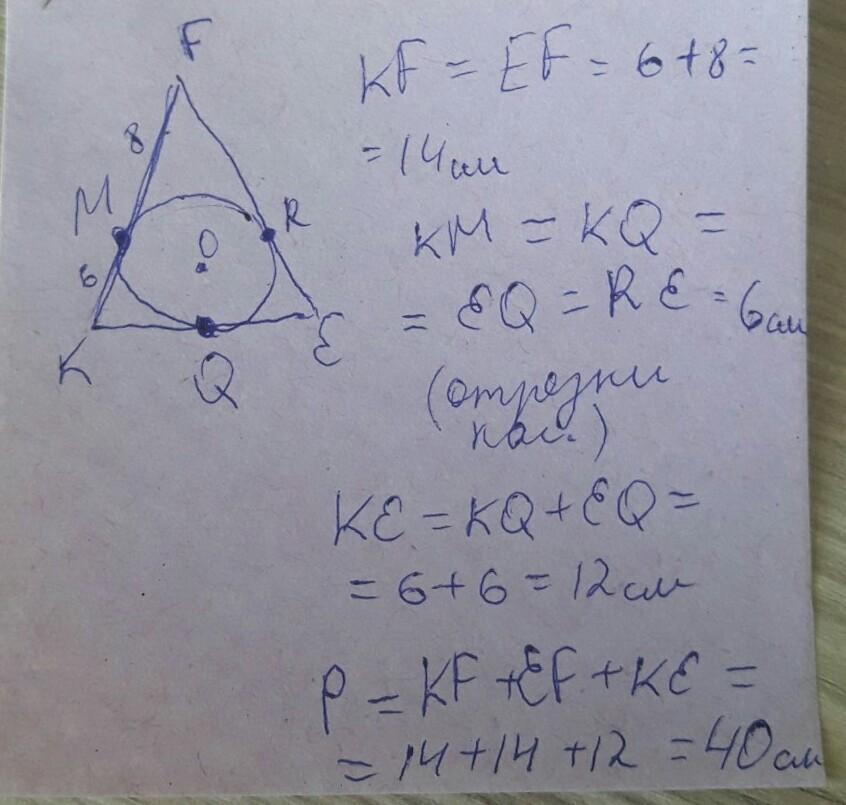 F
8
M
R
O
6
K
Q
E
KF = EF = 6+8=
=14см
KM = KQ =
= EQ = RE = 6см
(отрезки
кас.)
KE = KQ+EQ=
= 6+6 = 12см
P = KF+EF+KE =
= 14+14+12 = 40см